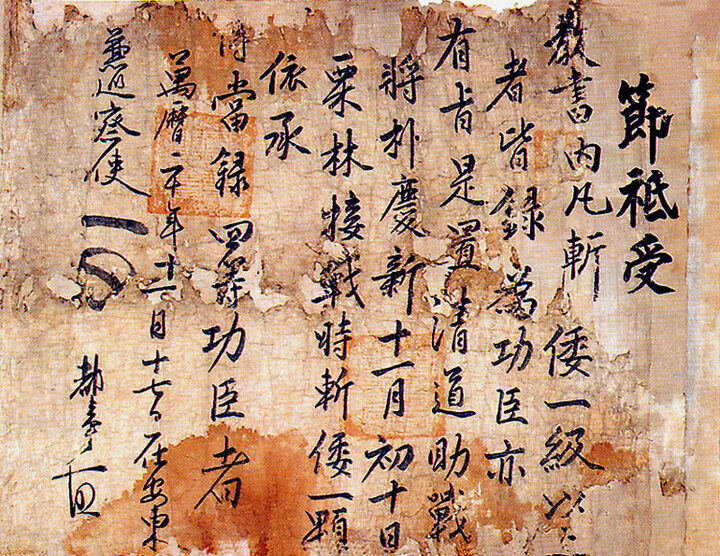 節祗受
教書內凡斬 倭一級以上
者皆錄 爲功臣亦
有旨是置淸道助戰
將朴慶新十一月初十日
栗林接戰時斬倭一顆
依承
傳當錄 功臣者
萬曆二十年十一月十七日在安東
兼巡察使
都事